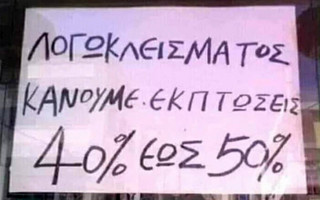 ΛΟΓΩΚΛΕΙΣΜΑΤΟΣ
ΚΑΝΟΥΜΕ. ΕΚΠΤΩΣΕΙΣ
40% ΕΩΣ 50%